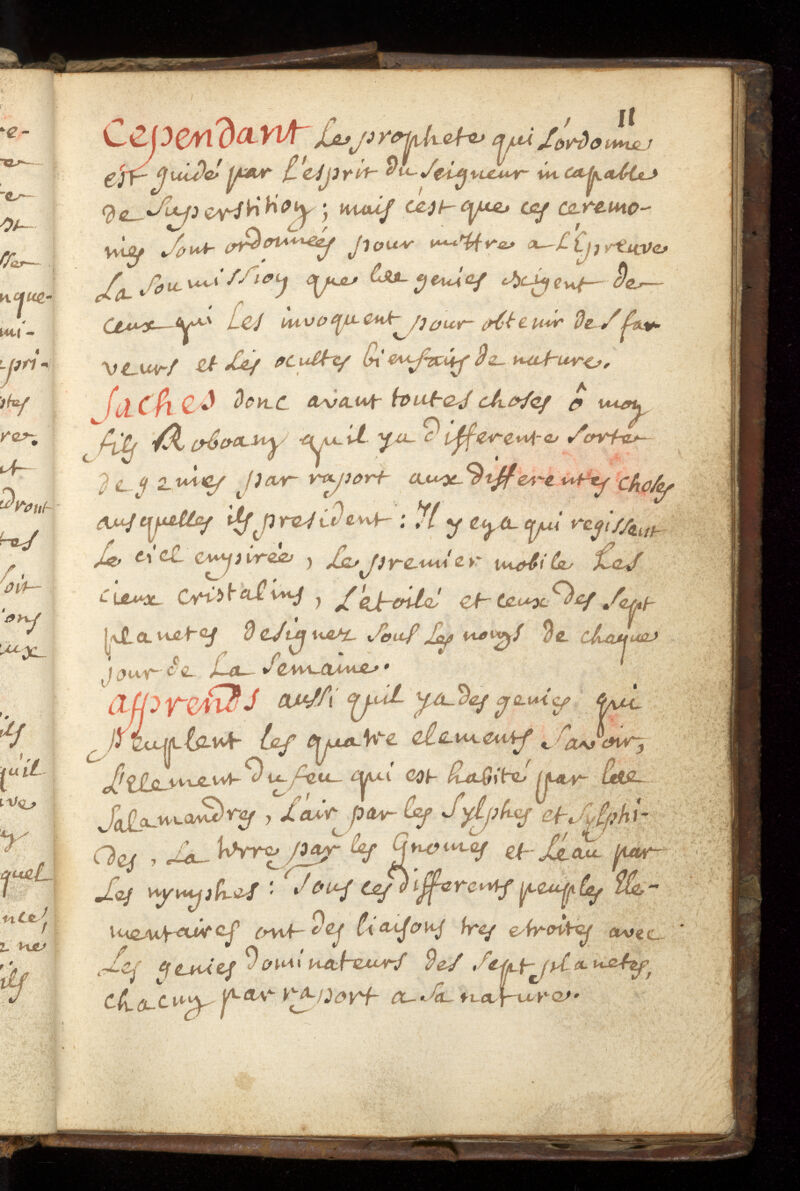 11
Cependant Le prophete qui L'ordonne
est guidé par L'esprit du seigneur incapable
de superstition ; mais c'est que ces ceremo-
nies sont ordonnées pour mettre a L'Epreuve
La soumission que les genies exigent de
ceux qui Les invoquent pour obtenir des fa-
veurs et Les ocultes bienfaits de nature.
Saches donc avant toutes choses ô mon
fils Roboam qu'il ya differente sorte
de genies par raport aux differentes choses
ausquelles ils president : Il y en a qui regissent
Le ciel empirée, Le premier mobile Les
cieux cristalins, L'étoilé et ceux des sept
planetes designez sous Les noms de chaque
jour de La semaine.
apprends aussi qu'il ya des genies qui
peuplent les quatre elements savoir,
L'Element du feu qui est habité par les
salamandres, L'air par les sylphes et sylphi-
des, La terre par les Gnomes et L'eau par
Les nymphes : Tous ces differents peuples Ele-
mentaires ont des liaisons tres etroites avec
Les genies dominateurs des sept planetes,
chacun par raport a sa nature.